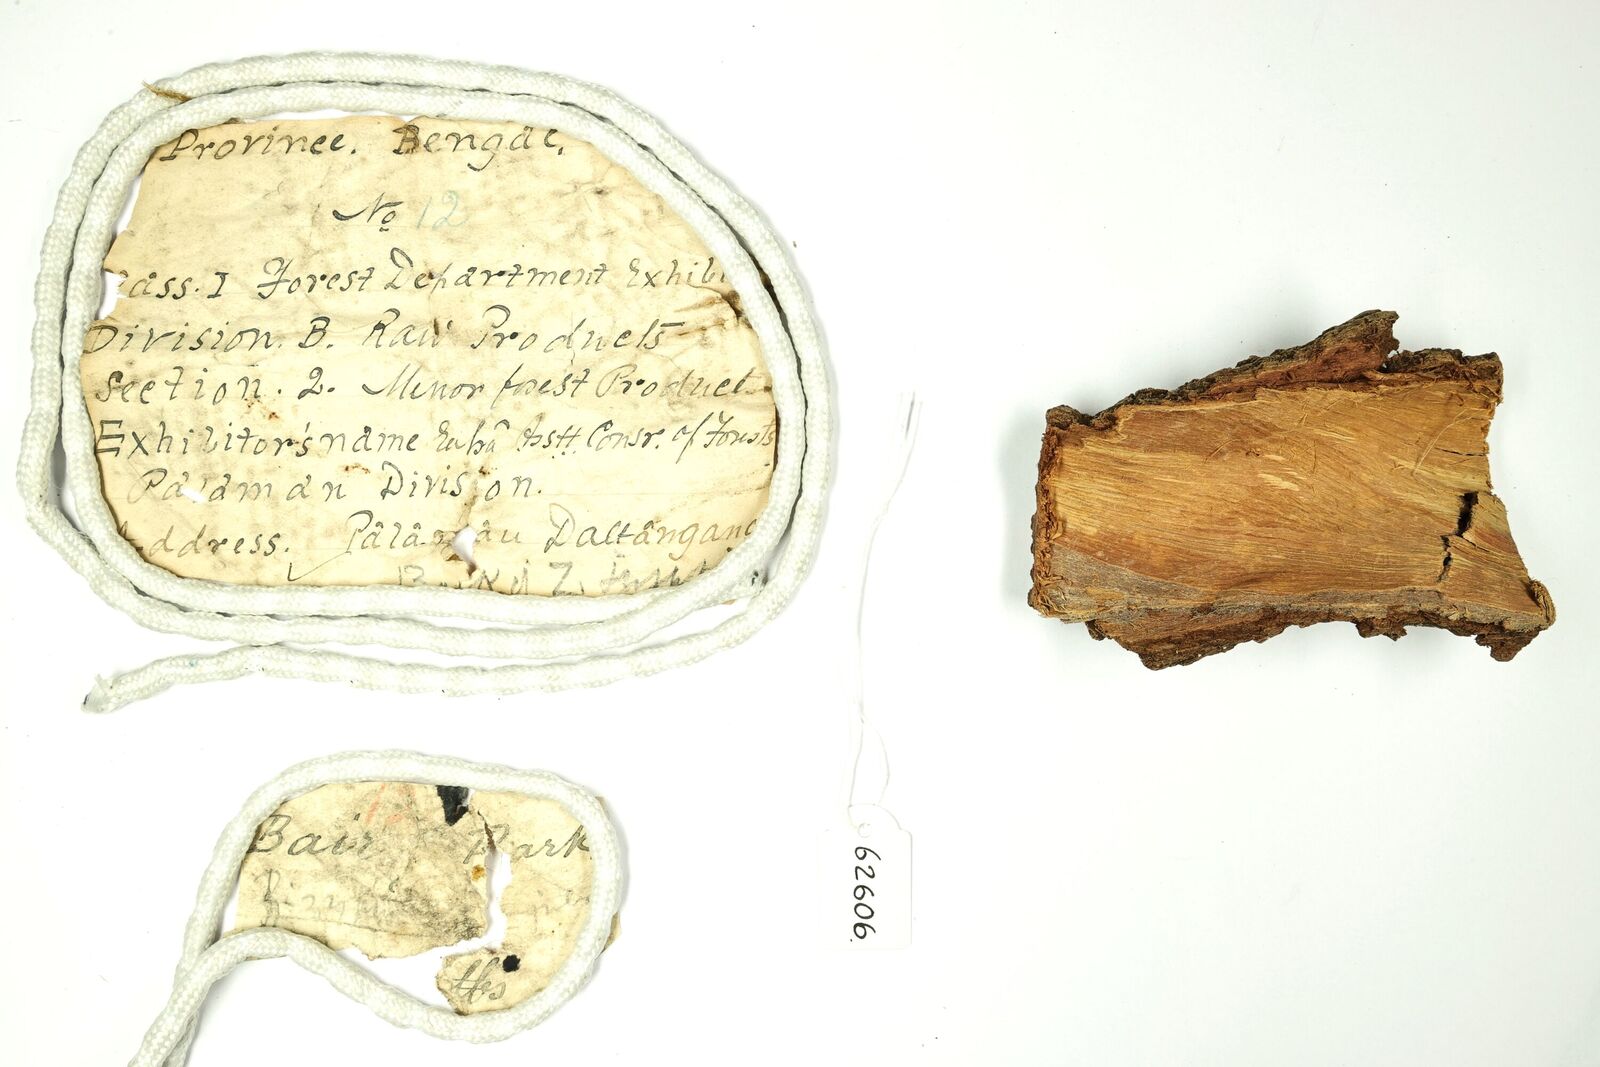 Province. Bengal.
No 12
Class. I Forest Department Exhibi
Division. B. Raw Products
Section. 2. Minor forest Product
Exhibitor's name Asstt. Consr. of Forests
Palamau Division.
Address. Pâlâmâu Daltângang
Bair Bark
lbs
62606.